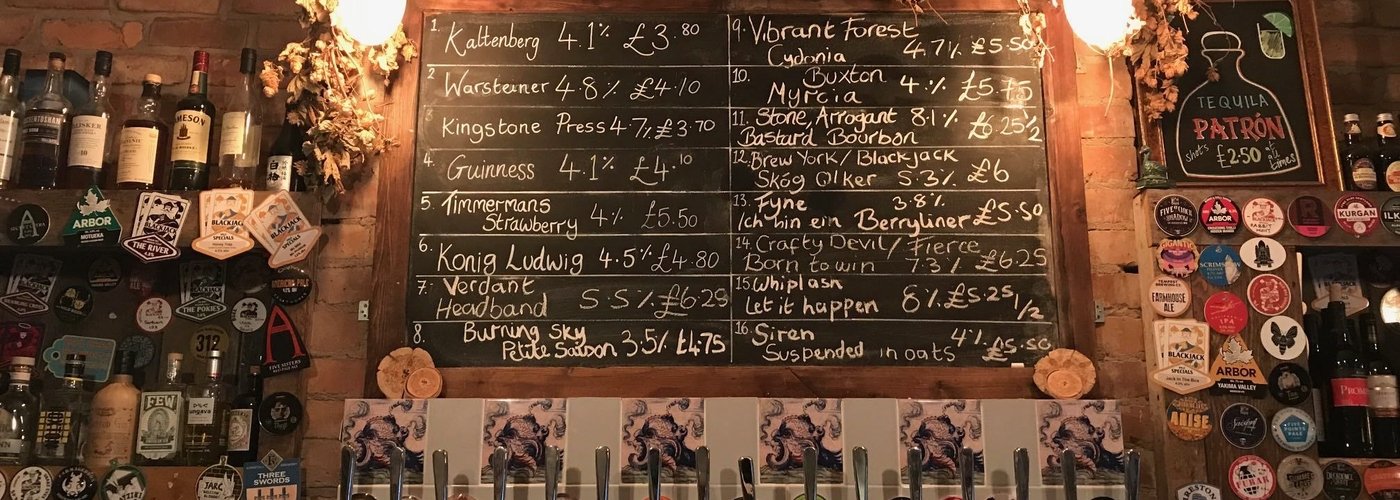 1. Kaltenberg 4.1% £3.80
2 Warsteiner 4.8% £4.10
3 Kingstone Press 4.7% £3.70
4. Guinness 4.1% £4.10
5. Timmermans
Strawberry 4% £5.50
6. Konig Ludwig 4.5% £4.80
7. Verdant
Headband 5.5% £6.25
8. Burning Sky
Petite Saison 3.5% £4.75
9. Vibrant Forest
Cydonia 4.7% £5.50
10. Buxton
Myrcia 4.% £5.75
11. Stone, Arrogant 8.1% £6.25 1/2
Bastard Bourbon
12. Brew York/Blackjack
Skög Olker 5.3% £6
13. Fyne 3.8%
Ich bin ein Berryliner £5.50
14. Crafty Devil/Fierce
Born to win 7.3% £6.25
15. Whiplash
Let it happen 8% £5.25 1/2
16. Siren 4%
Suspended in oats £5.50
TEQUILA
PATRÓN
Shots £2.50 at all times
JAMESON
ARBOR
MOTUEKA
BLACKJACK
THE RIVER
BLACKJACK
SPECIALS
THE POKIES
312
FEW
THREE
SWORDS
ARBOR
KURGAN
GIGANTIC
FARMHOUSE
ALE
BLACKJACK
SPECIALS
Jack In The Box
ARBOR
YAKIMA VALLEY
FIVE
POINTS
PALE